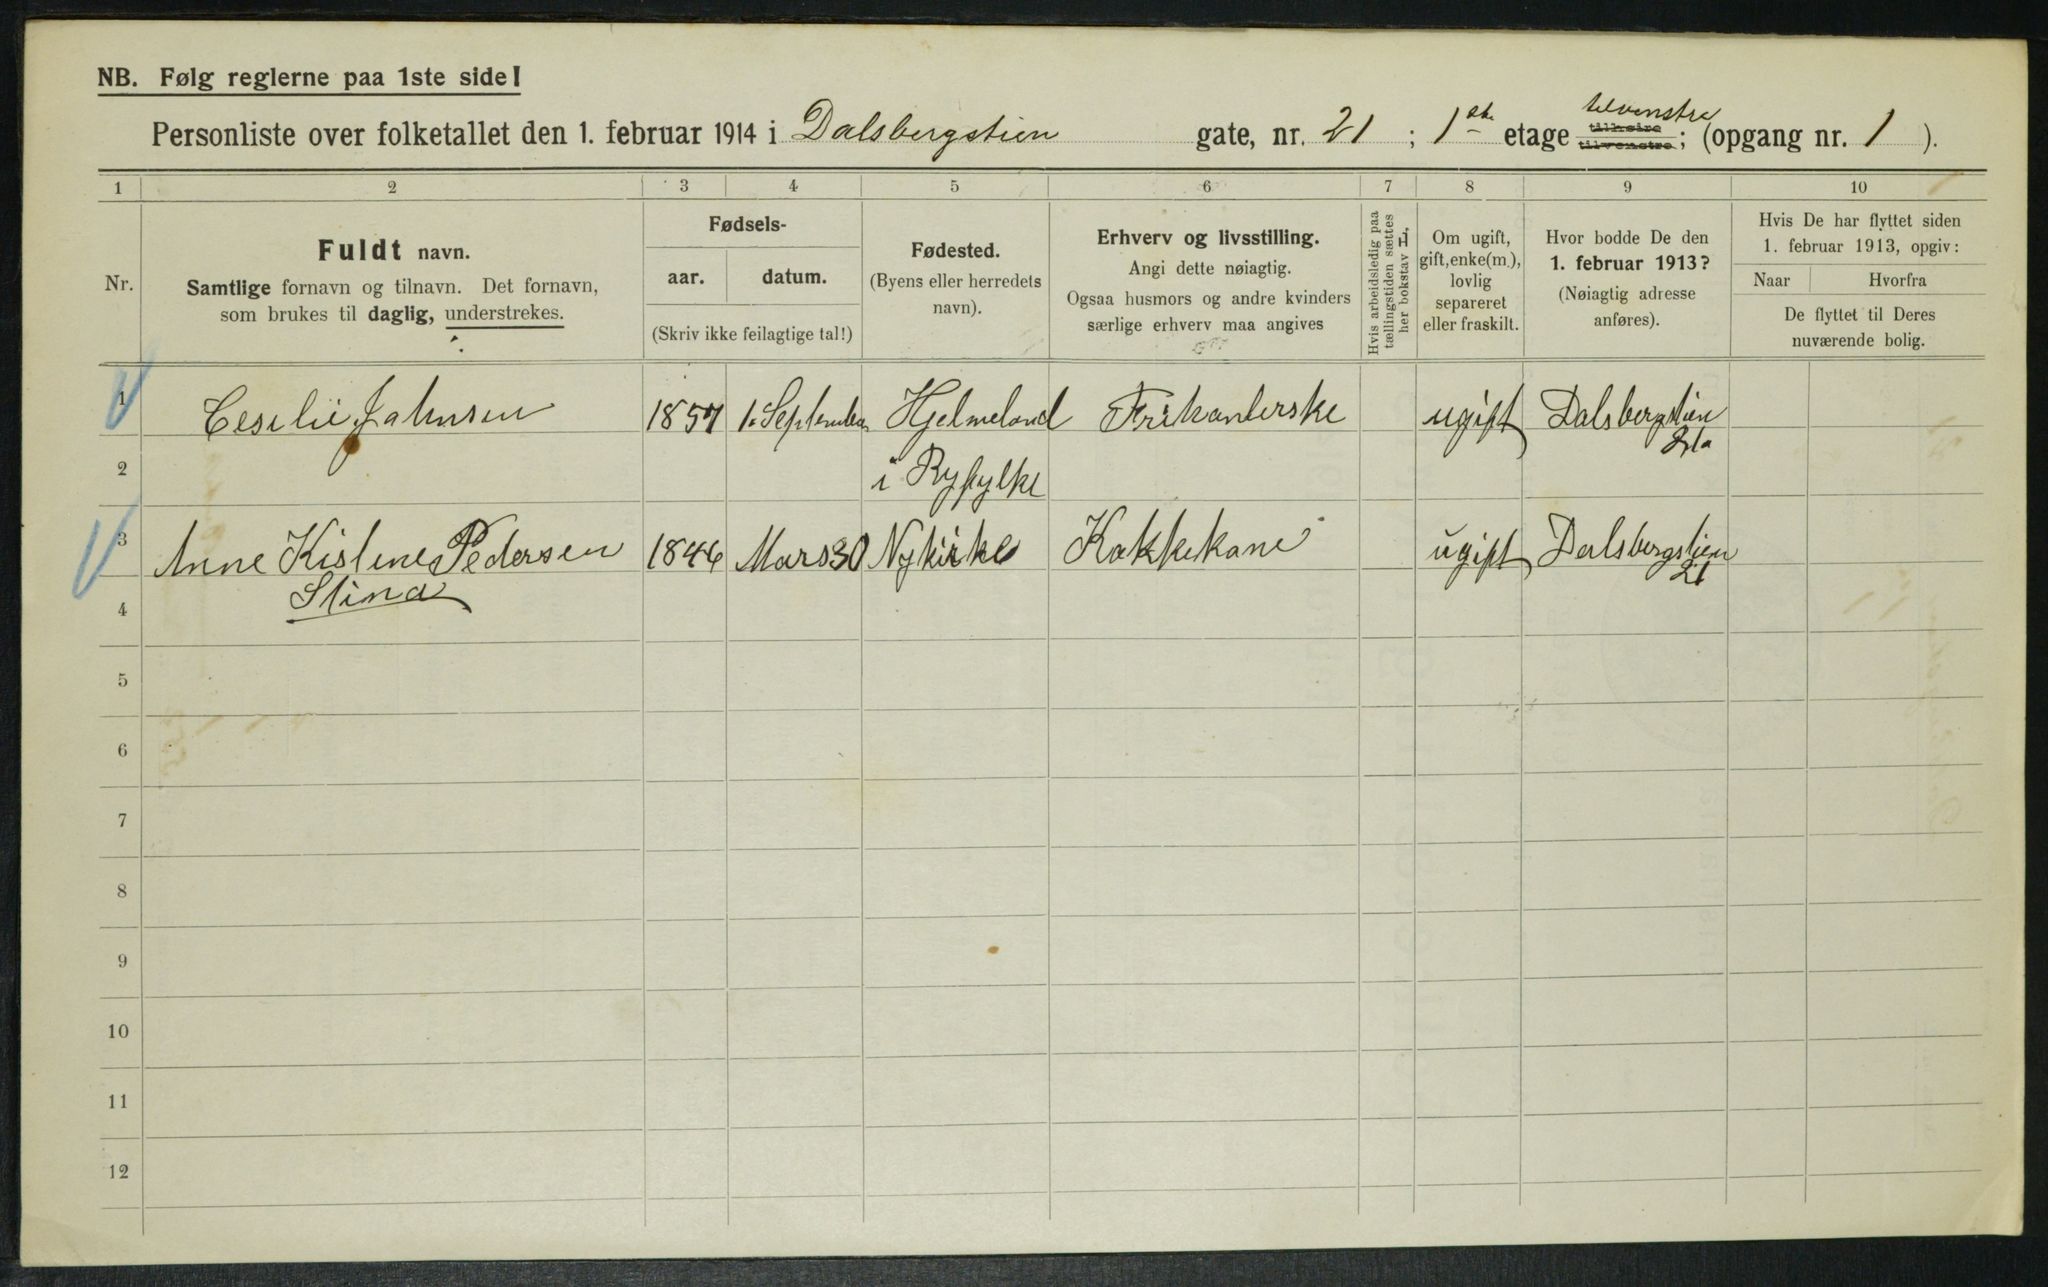 NB. Følg reglerne paa 1ste side!
tilvenstre
Personliste over folketallet den 1. februar 1914 i Dalsbergstien gate, nr. 21 ; 1ste etage tilhøire tilvenstre; (opgang nr. 1 ).
1 2 3 4 5 6 7 8 9 10
Nr.
Fuldt navn.
Samtlige fornavn og tilnavn. Det fornavn,
som brukes til daglig, understrekes.
Fødsels-
aar. datum.
(Skriv ikke feilagtige tal!)
Fødested.
(Byens eller herredets
navn).
Erhverv og livsstilling.
Angi dette nøiagtig.
Ogsaa husmors og andre kvinders
særlige erhverv maa angives
Hvis arbeidsledig paa
tællingstiden sættes
her bokstav L.
Om ugift,
gift, enke(m.),
lovlig
separeret
eller fraskilt.
Hvor bodde De den
1. februar 1913?
(Nøiagtig adresse
anføres).
Hvis De har flyttet siden
1. februar 1913, opgiv:
Naar Hvorfra
De flyttet til Deres
nuværende bolig.
1 Ceselie Jahnsen 1857 1. September Hjelmeland Frikanterske ugift Dalsbergstien
21a
2 i Ryfylke
3 Anne Kistine Pedersen 1846 Mars 30 Nykirke Kokkekone ugift Dalsbergstien
21
4 Stina
5
6
7
8
9
10
11
12